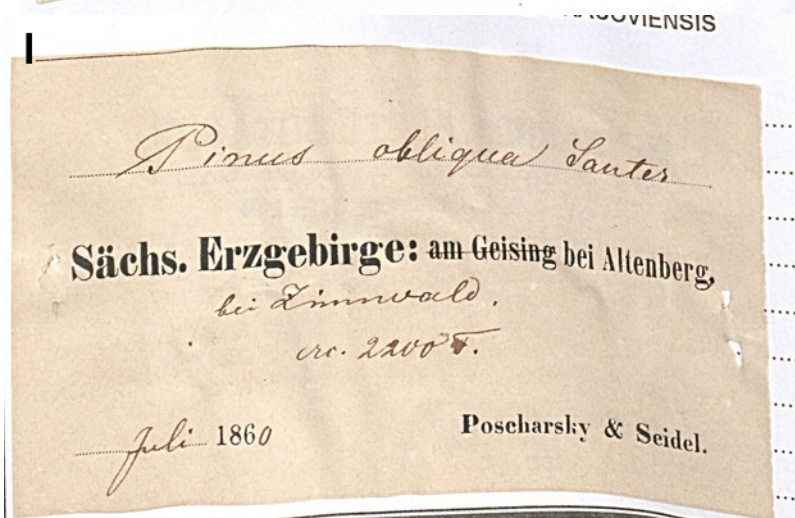 Pinus obliqua Sauter
Sächs. Erzgebirge: am Geising bei Altenberg,
bei Zinnwald.
crc. 2200 F.
Juli 1860
Poscharsky & Seidel.